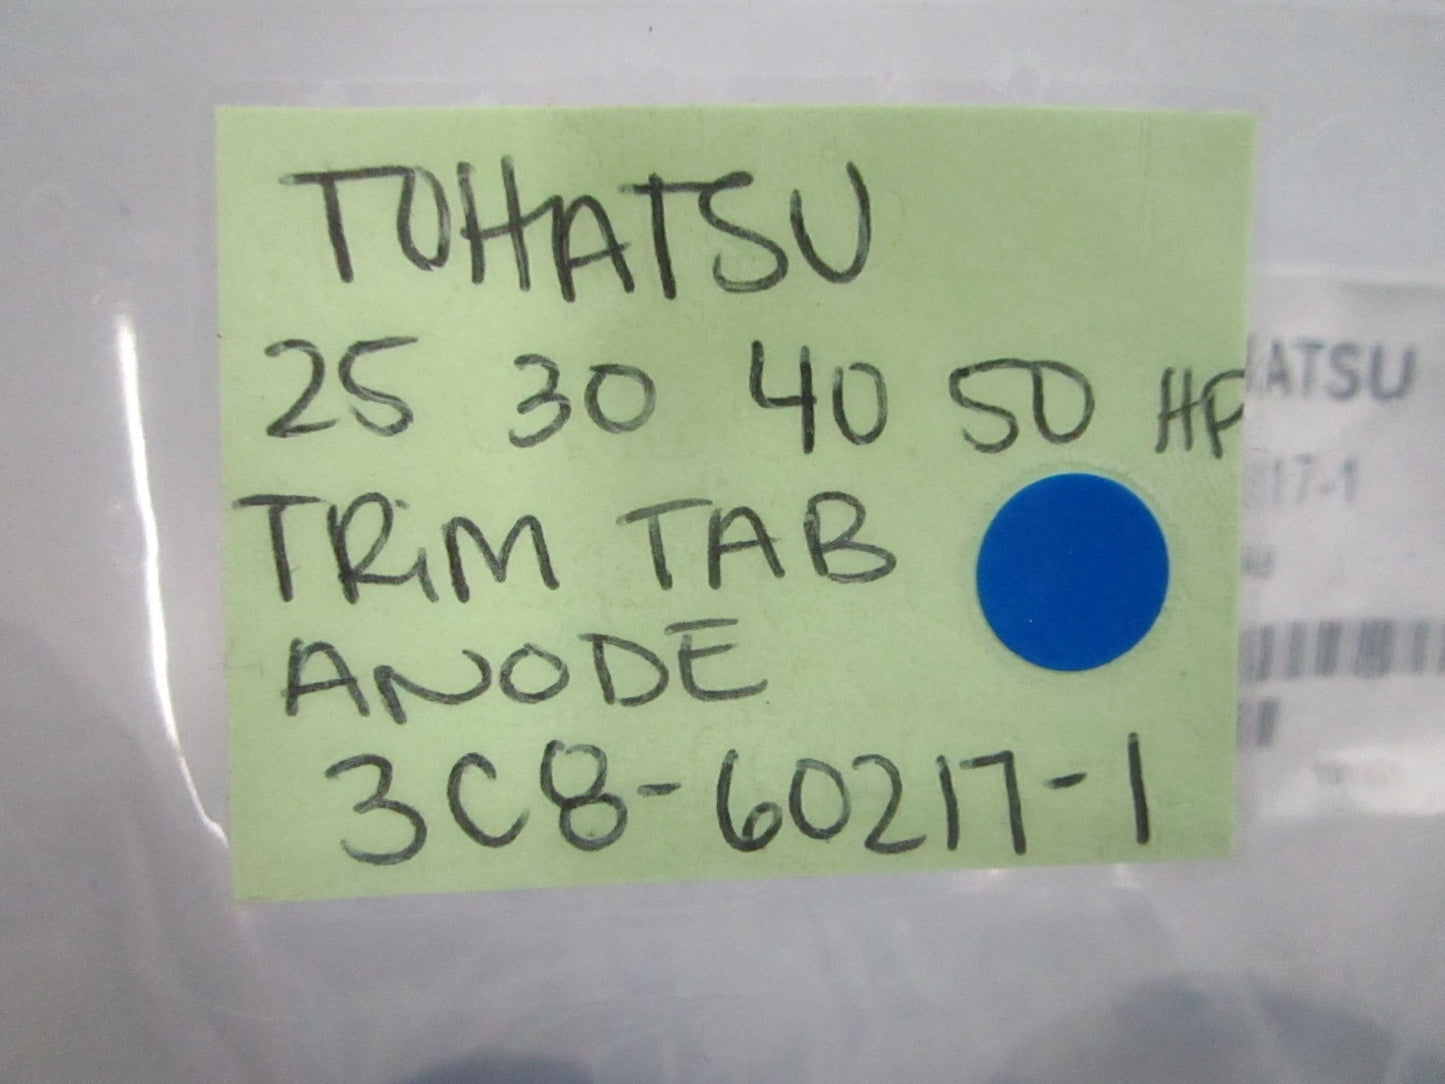 TOHATSU
25 30 40 50 HP
TRiM TAB
ANODE
3C8-60217-1
ATSU
17-1